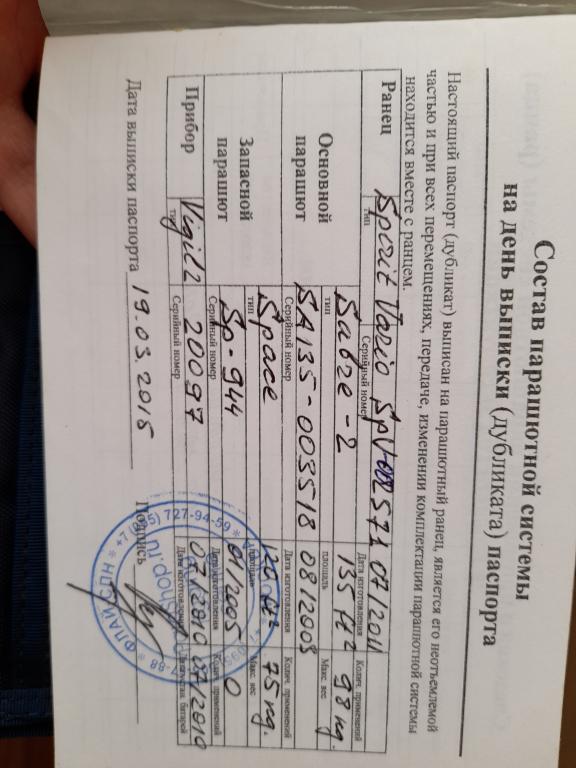 Состав парашютной системы
на день выписки (дубликата) паспорта
Настоящий паспорт (дубликат) выписан на парашютный ранец, является его неотъемлемой
частью и при всех перемещениях, передаче, изменении комплектации парашютной системы
находится вместе с ранцем.
Ранец Sporit Vario SpV-002571 07/2011
тип Серийный номер Дата изготовления Колич. применений
Основной парашют
Sabre-2 135 ft² 98 kg.
тип площадь Макс. вес
SA135-003518 08/2008
Серийный номер Дата изготовления Колич. применений
Запасной парашют
Space ft² 75 kg.
тип площадь Макс. вес
Sp-944 01/2005 0
Серийный номер Дата изготовления Колич. применений
Прибор Vigil 2 20097 07/2010 07/2010
тип Серийный номер Дата изготовления батарей
Дата выписки паспорта 19.03.2015 Подпись
727-94-59 * ФЛАЙ